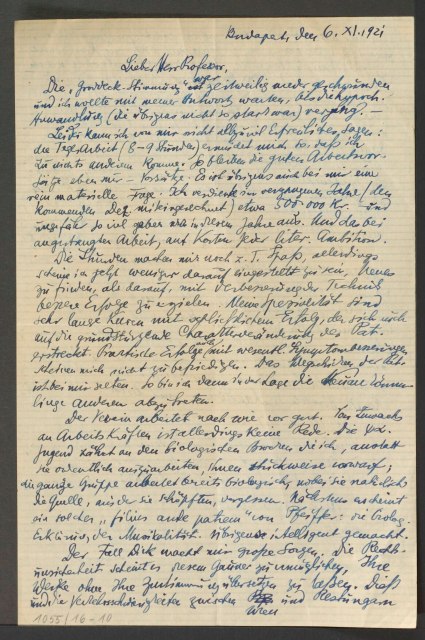 Budapest, den 6. XI. 1921
Lieber Herr Professor,
Die „Groddeck-Stimmung" war zeitweilig wieder geschwunden
und ich wollte mit meiner Antwort warten, bis die hypoch.
Anwandlung (die übrigens nicht so stark war) vergeht. —
Leider kann ich von mir nicht allzuviel Erfreuliches sagen:
die Tagesarbeit (8–9 Stunden) ermüdet mich so, daß ich
zu nichts anderem komme. So bleiben die guten Arbeitsvor-
sätze eben nur — Vorsätze. Es ist übrigens auch bei mir eine
rein materielle Frage. Ich verdiente im vergangenen Jahre (den
kommenden Dez. miteingerechnet) etwa 500.000 Kr. — und
ungefähr so viel geben wir in diesem Jahre aus. Und das bei
angestrengter Arbeit, auf Kosten jeder liter. Ambition.
Die Stunden machen mir noch z. T. Spaß, allerdings
scheine ich jetzt weniger darauf eingestellt zu sein, Neues
zu finden, als darauf, mit verbesserter Technik
bessere Erfolge zu erzielen. Meine Spezialität sind
sehr lange Kuren mit schließlichem Erfolg, der sich auch
auf die grundlegende Charakterveränderung des Pat.
erstreckt. Praktische Erfolge, auch mit wesentl. Symptombesserungen
scheinen mich nicht zu befriedigen. Das Wegschicken der Pat.
ist bei mir selten. So bin ich denn in der Lage die Neuankömm-
linge anderen abzutreten.
Der Verein arbeitet nach wie vor gut. Von Zuwachs
an Arbeitskräften ist allerdings keine Rede. Die
Jugend zehrt an den biologischen Brocken die ich, anstatt
sie ordentlich auszuarbeiten, ihnen stückweise vorwarf;
die ganze Gruppe arbeitet bereits biologisch, wobei sie natürlich
die Quelle, aus der sie schöpften, vergessen. Nächstens erscheint
ein solches „filius ante patrem" von Pfeifer: die biolog.
Erklärung der Musikalität. Übrigens intelligent gemacht.
Der Fall Dick macht mir große Sorgen. Die Rechts-
unsicherheit scheint es diesem Gauner zu ermöglichen, Ihre
Werke ohne Ihre Zustimmung übersetzen zu lassen. Dieß
und die Verkehrsschwierigkeiten zwischen und Restungarn
Wien
1055/16-10